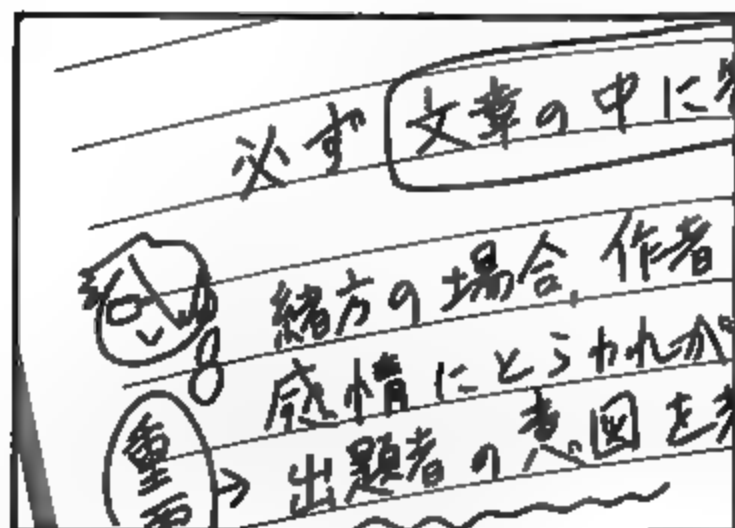 必ず 文章の中に
緒方の場合、作者
感情にとらわれが
重
→ 出題者の意図を